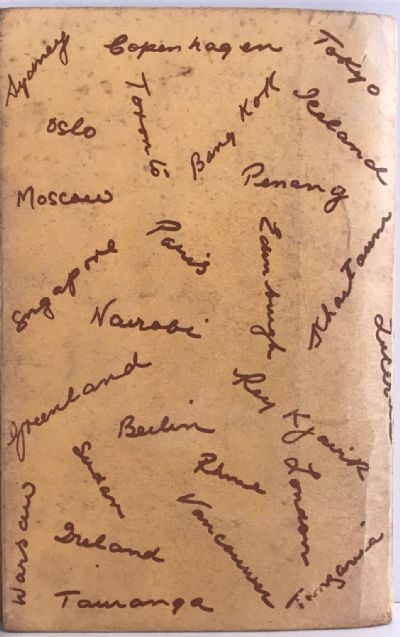 Sydney
Copenhagen
Tokyo
Oslo
Toronto
Bangkok
Iceland
Moscow
Penang
Paris
Edinburgh
Khartoum
Singapore
Nairobi
Greenland
Reykjavik
Berlin
Sudan
Rome
London
Vancouver
Warsaw
Ireland
Tauranga